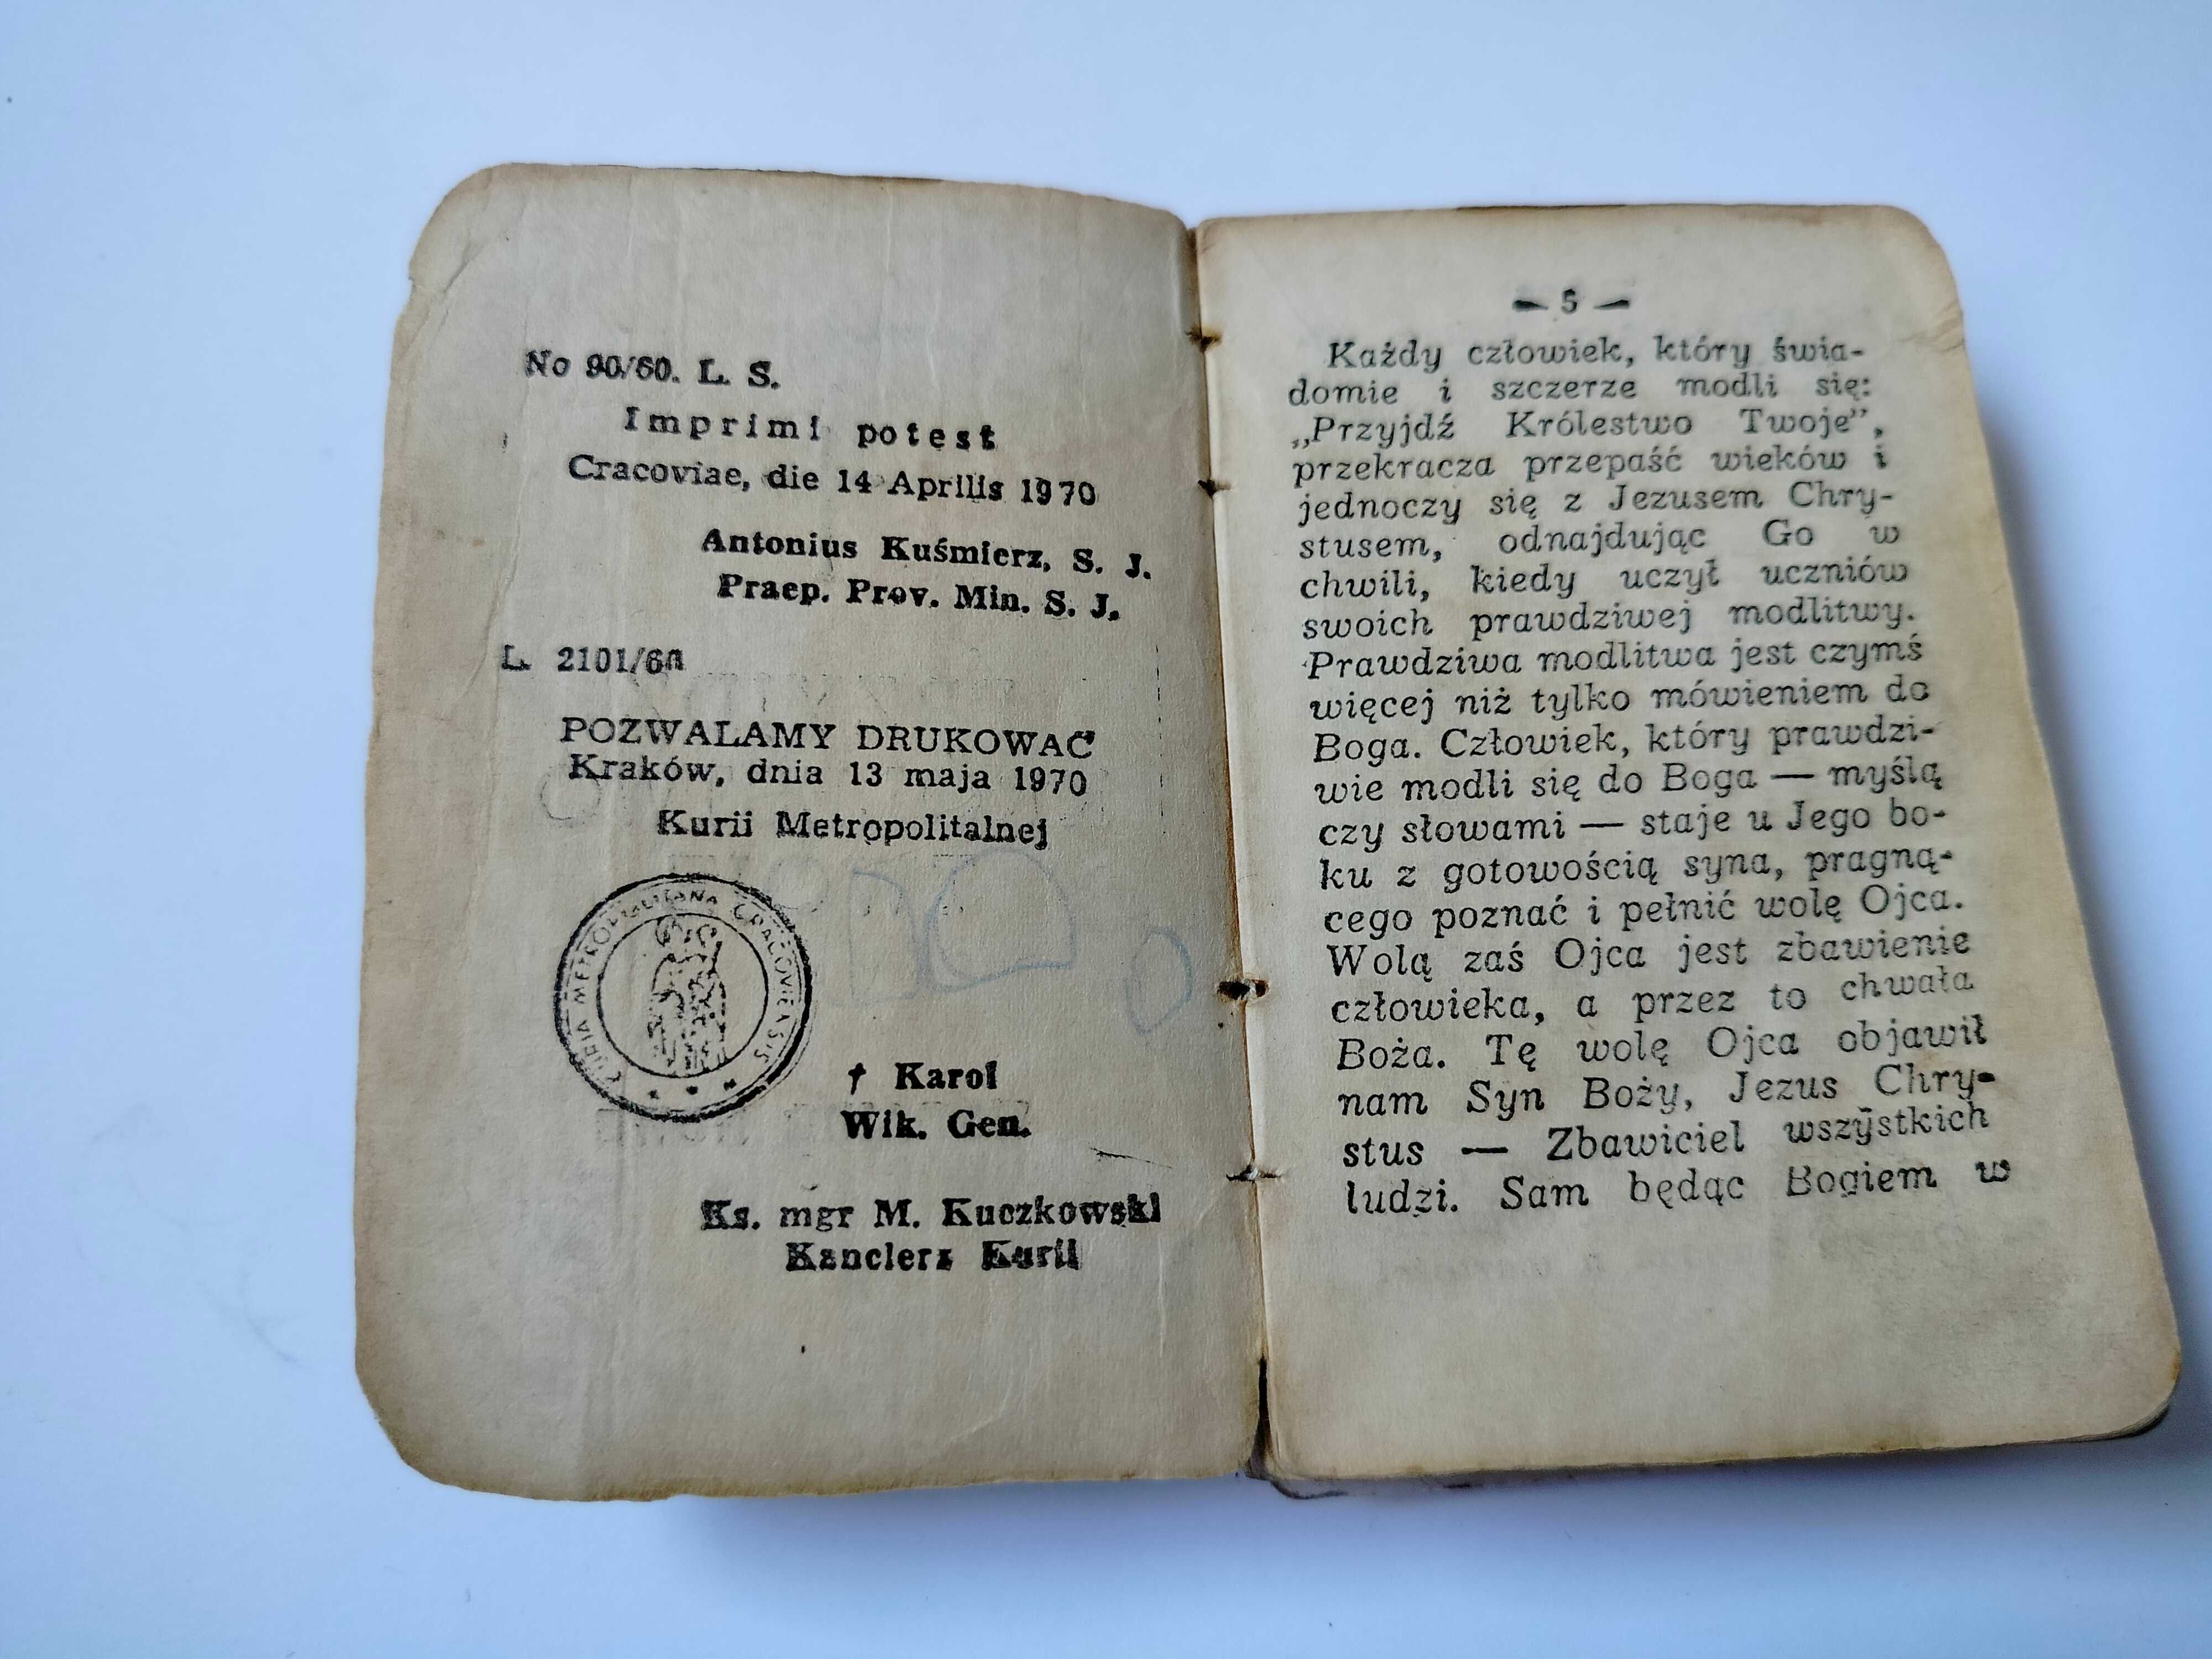 No 90/60. L. S.
Imprimi potest
Cracoviae, die 14 Aprilis 1970
Antonius Kuśmierz, S. J.
Praep. Prov. Min. S. J.
L. 2101/60
POZWALAMY DRUKOWAĆ
Kraków, dnia 13 maja 1970
Kurii Metropolitalnej
CURIA METROPOLITANA CRACOVIENSIS
† Karol
Wik. Gen.
Ks. mgr M. Kuczkowski
Kanclerz Kurii
— 5 —
Każdy człowiek, który świa-
domie i szczerze modli się:
„Przyjdź Królestwo Twoje”,
przekracza przepaść wieków i
jednoczy się z Jezusem Chry-
stusem, odnajdując Go w
chwili, kiedy uczył uczniów
swoich prawdziwej modlitwy.
Prawdziwa modlitwa jest czymś
więcej niż tylko mówieniem do
Boga. Człowiek, który prawdzi-
wie modli się do Boga — myślą
czy słowami — staje u Jego bo-
ku z gotowością syna, pragną-
cego poznać i pełnić wolę Ojca.
Wolą zaś Ojca jest zbawienie
człowieka, a przez to chwała
Boża. Tę wolę Ojca objawił
nam Syn Boży, Jezus Chry-
stus — Zbawiciel wszystkich
ludzi. Sam będąc Bogiem w